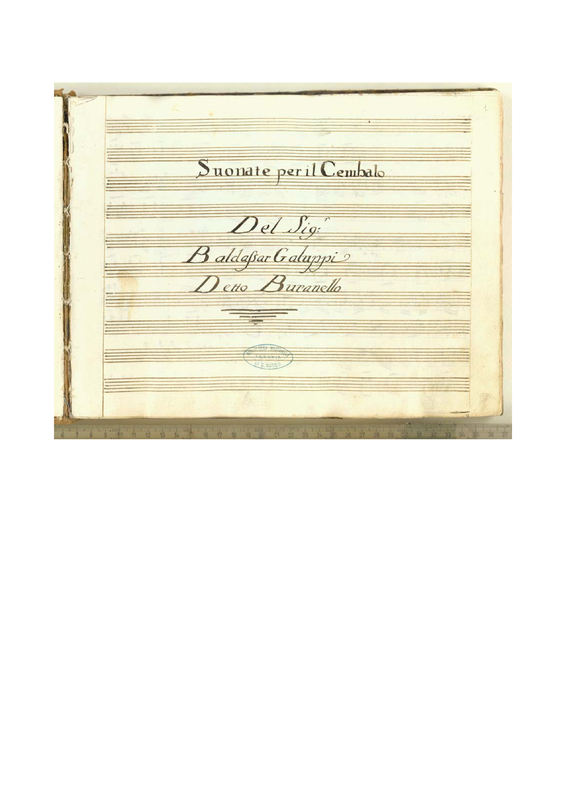 Suonate per il Cembalo
Del Sig.r
Baldaſsar Galuppi
Detto Buranello